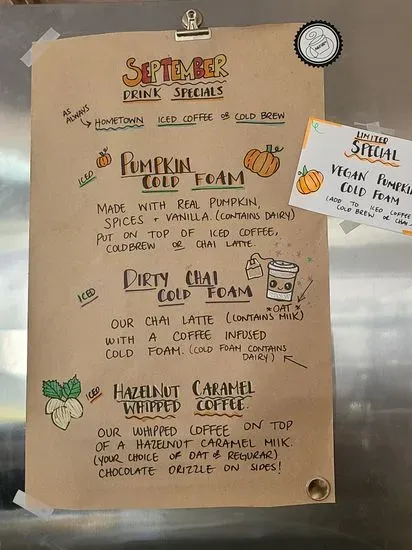 SEPTEMBER
DRINK SPECIALS
AS ALWAYS
HOMETOWN ICED COFFEE OR COLD BREW
ICED
PUMPKIN
COLD FOAM
MADE WITH REAL PUMPKIN,
SPICES + VANILLA. (CONTAINS DAIRY)
PUT ON TOP OF ICED COFFEE,
COLDBREW OR CHAI LATTE.
ICED
DIRTY CHAI
COLD FOAM
*OAT*
OUR CHAI LATTE (CONTAINS MILK)
WITH A COFFEE INFUSED
COLD FOAM. (COLD FOAM CONTAINS
DAIRY)
ICED
HAZELNUT CARAMEL
WHIPPED COFFEE.
OUR WHIPPED COFFEE ON TOP
OF A HAZELNUT CARAMEL MILK.
(YOUR CHOICE OF OAT & REGURAR)
CHOCOLATE DRIZZLE ON SIDES!
LIMITED
SPECIAL
VEGAN PUMPKIN
COLD FOAM
(ADD TO ICED COFFEE
COLD BREW OR CHAI